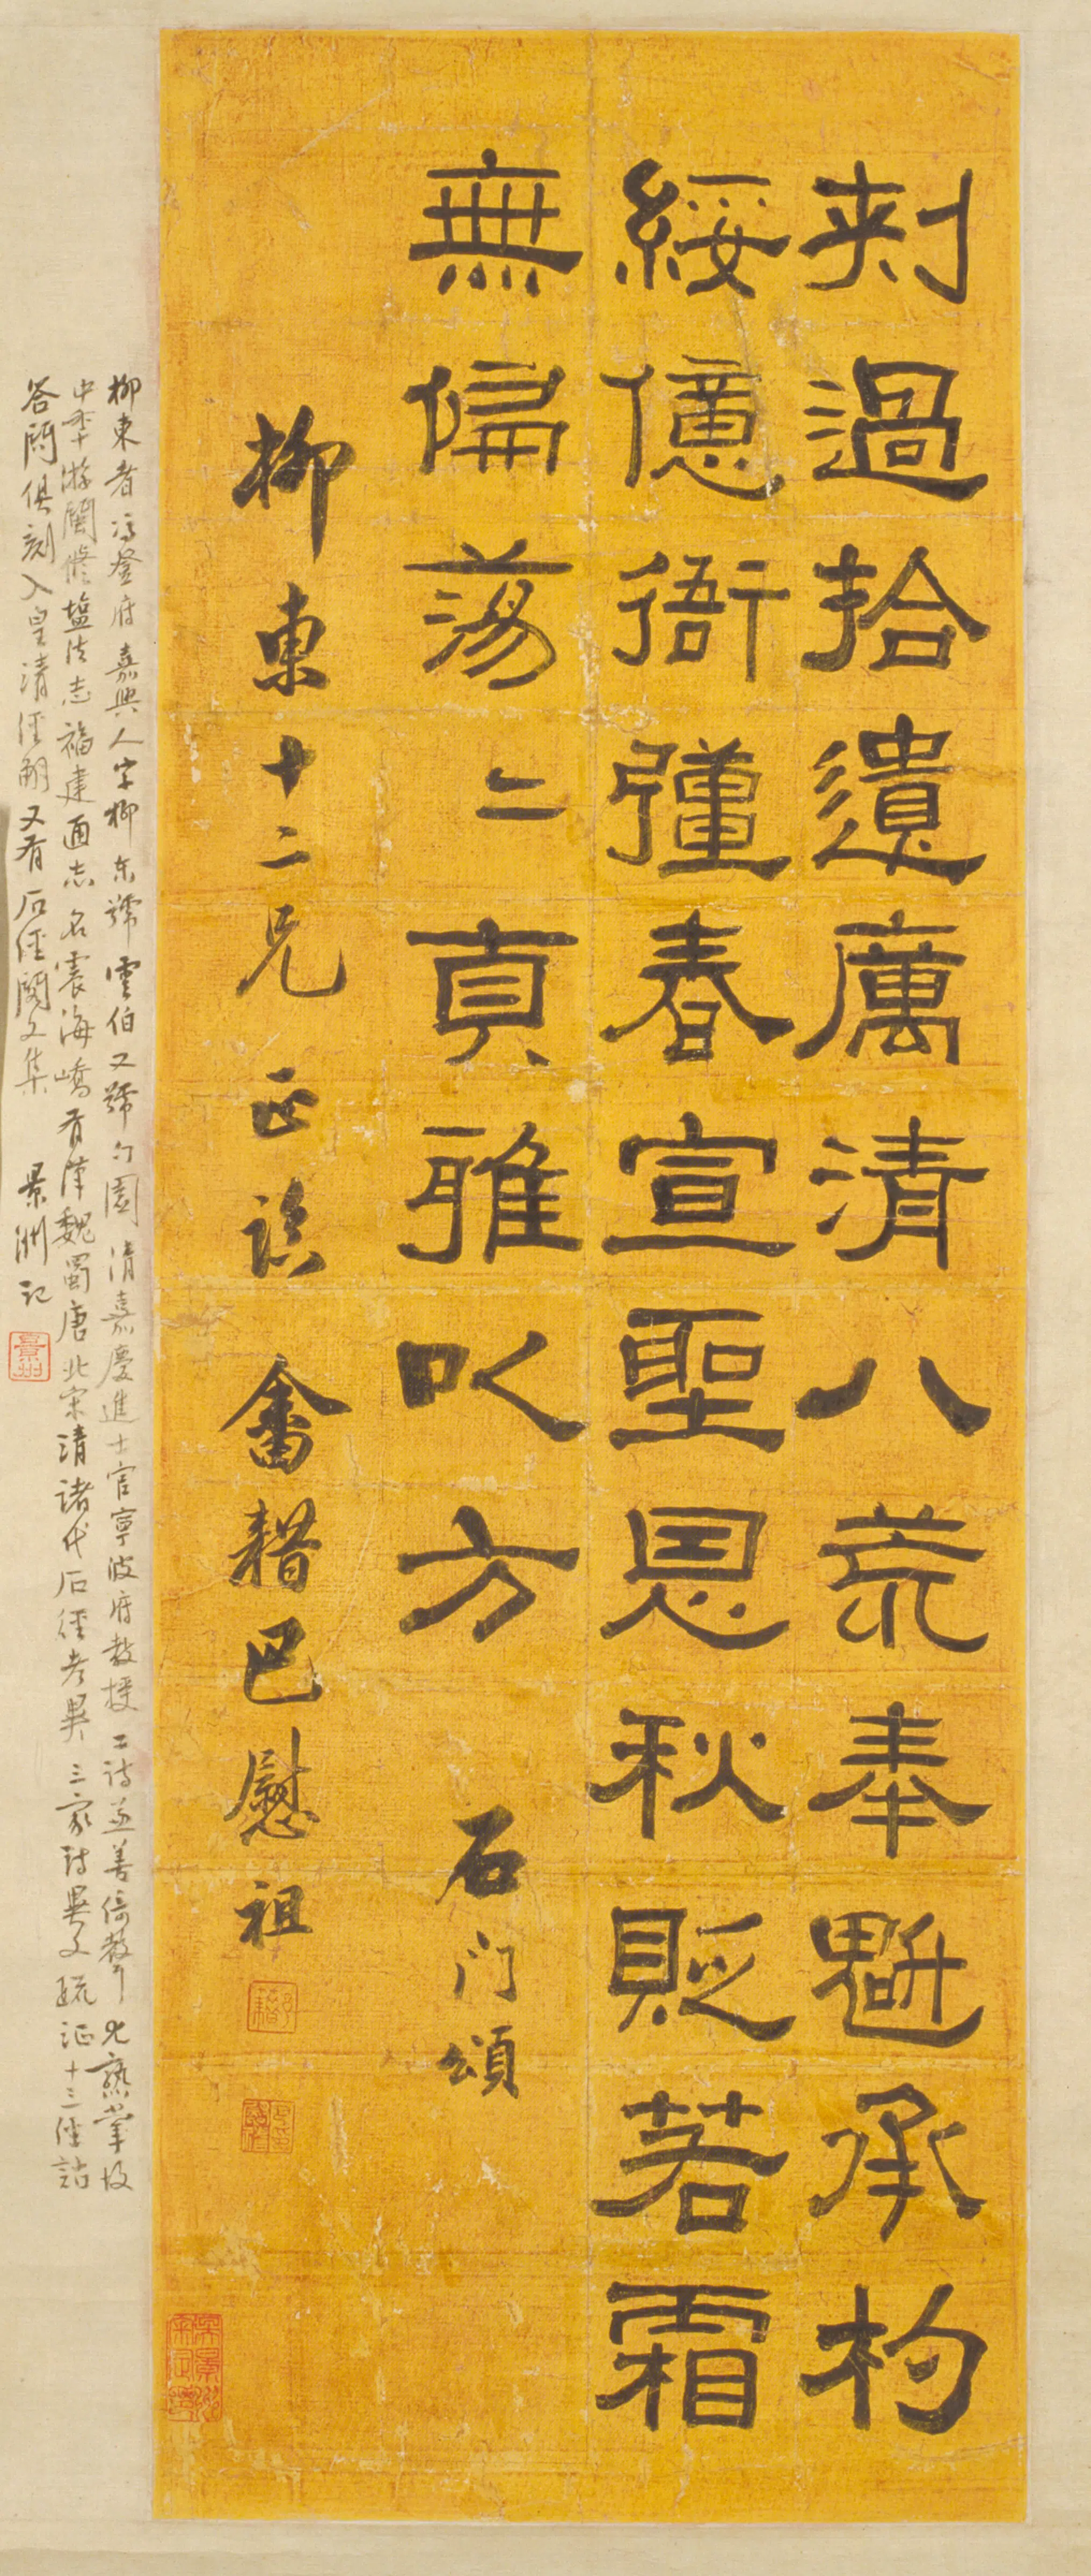 刺過拾遺厲清八荒奉魁承杓
綏億衙彊春宣聖恩秋貶若霜
無偏蕩二貞雅以方 石门頌
柳東十二兄正 畬耤巴慰祖
柳東者馮登府嘉興人字柳东號雲伯又號勺園清嘉慶進士官寧波府教授工詩並善倚聲尤熟掌故
中季游閩修鹽法志福建通志名震海嶠有漢魏蜀唐北宋清諸代石經考異三家詩異文疏証十三經詁
答問俱刻入皇清經解又有石經閣文集 景洲記
景州